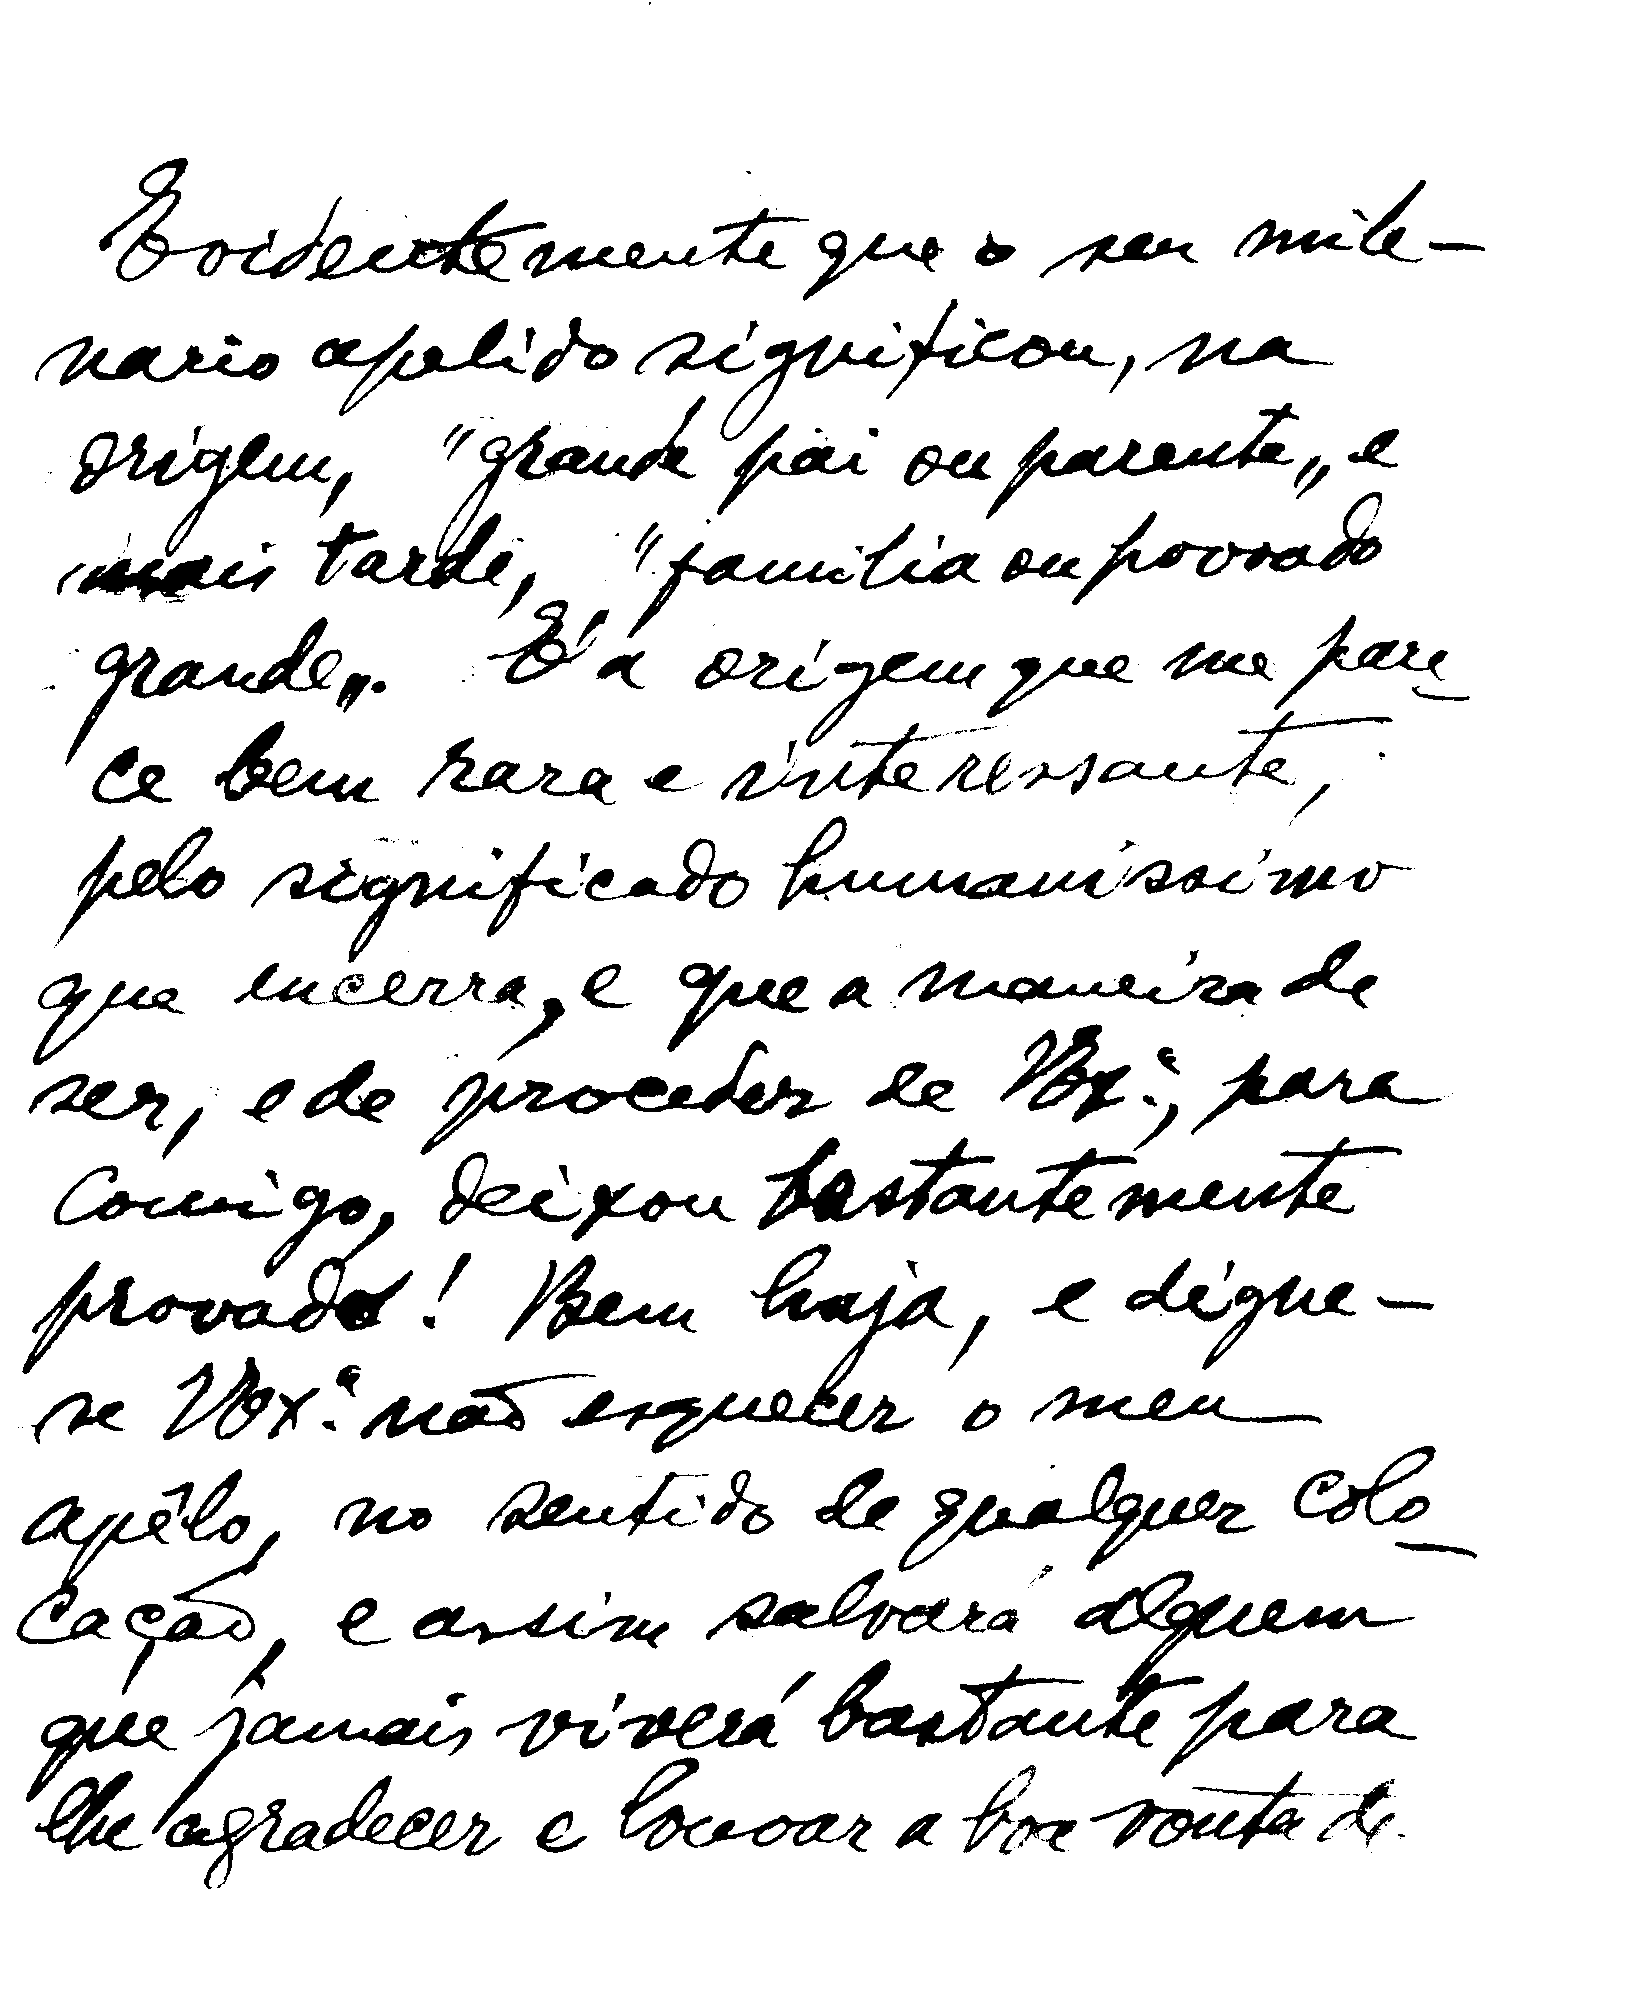 Evidentemente que o seu mile-
nario apelido significou, na
origem, "grande pai ou parente„ e
mais tarde, "familia ou povoado
grande„. É a origem que me pare_
ce bem rara e interessante,
pelo significado humanissimo
que encerra, e que a maneira de
ser, e de proceder de VExª., para
comigo, deixou bastantemente
provado! Bem haja, e digne-
se VExª. não esquecer o meu
apêlo, no sentido de qualquer colo_
cação, e assim salvará alguem
que jamais viverá bastante para
lhe agradecer e louvar a boa vontade